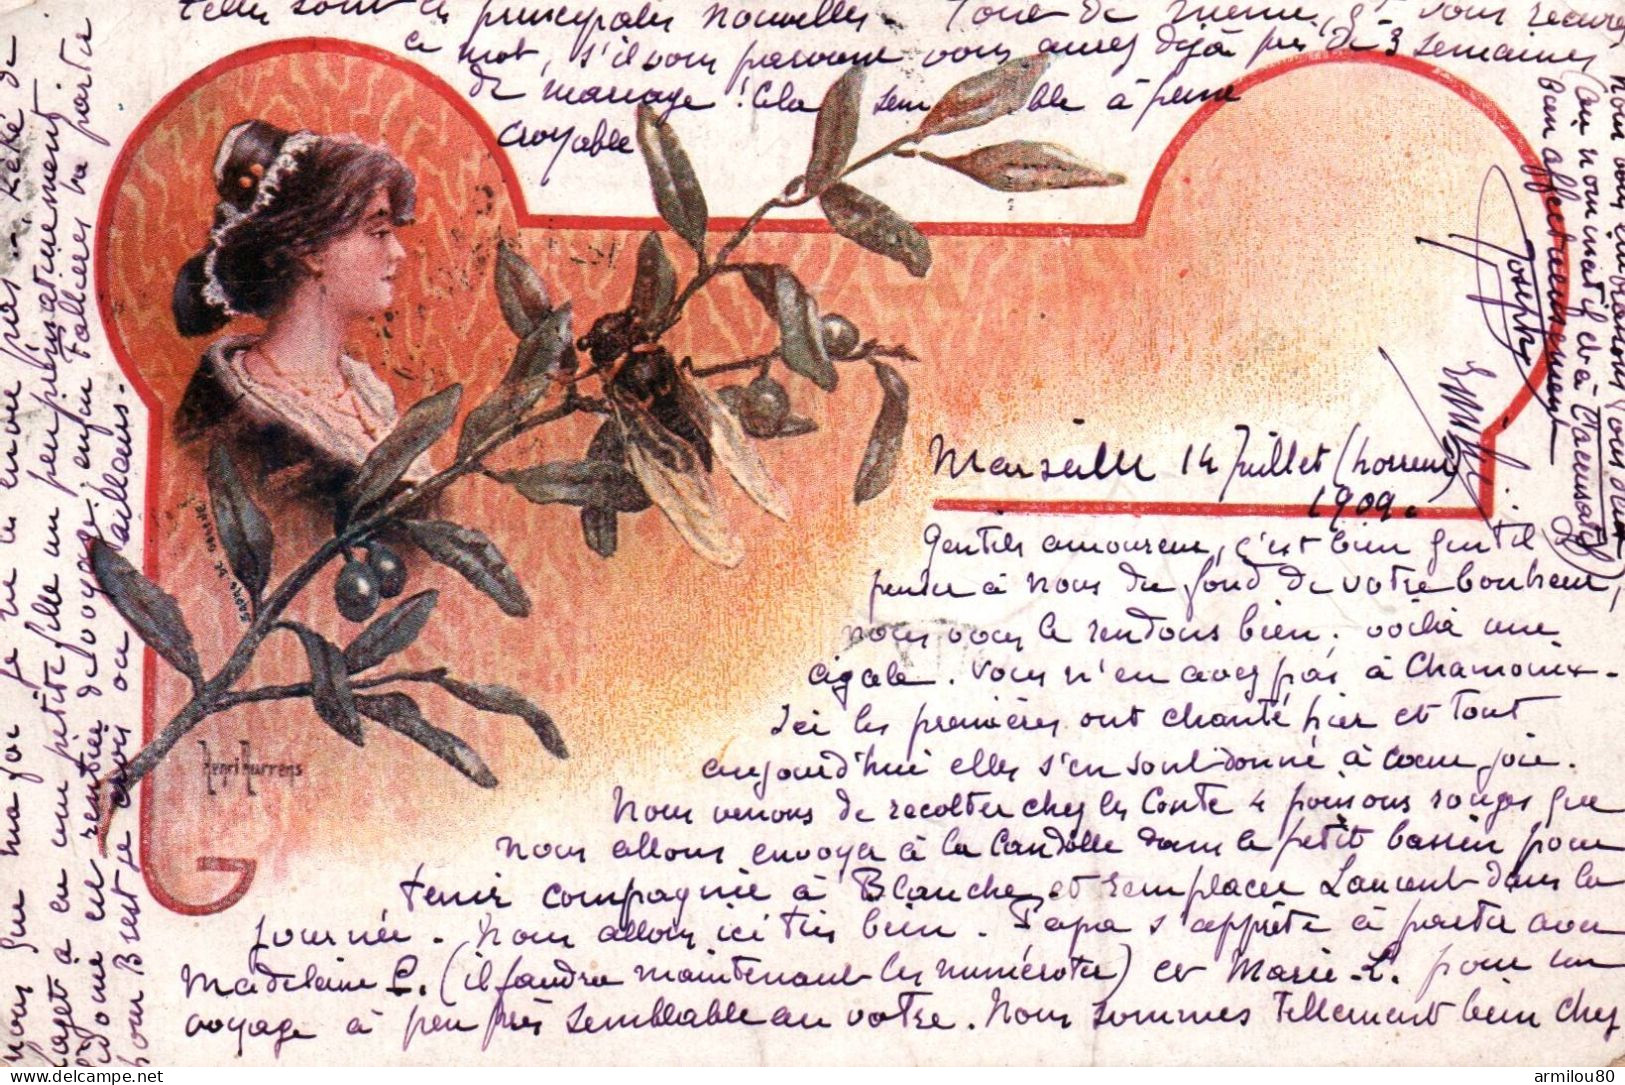 Marseille 14 Juillet (horreur)
1909.
Gentils amoureux, c'est bien gentil
penser à nous du fond de votre bonheur,
nous vous le rendons bien. voilà une
cigale. Vous n'en avez pas à Chamonix -
Ici les premières ont chanté hier et tout
aujourd'hui elles s'en sont donné à cœur joie.
Nous venons de récolter chez les Conte 4 poissons rouges que
nous allons envoyer à la Candolle dans le petit bassin pour
tenir compagnie à Blanche, et remplacer Laurent dans la
journée. Nous allons ici très bien. Papa s'apprête à partir avec
Madeleine C. (il faudra maintenant les numéroter) et Marie-L. pour un
voyage à peu près semblable au vôtre. Nous sommes tellement bien chez
nous que ma foi je ne les envie pas -
en une petite fille un peu prématurément
donc est rentrée de voyage; enfin Fallières va partir
pour Brest je crois ou ailleurs.
Telles sont les principales nouvelles - Tout de même, vous recevrez
ce mot, s'il vous parvient vous aurez déjà près de 3 semaines
de mariage! Cela semble à peine
croyable
nous vous embrassons tous deux
(au nominatif et à l'accusatif)
bien affectueusement
Joseph
Emily
Henri Burrens
armilou80